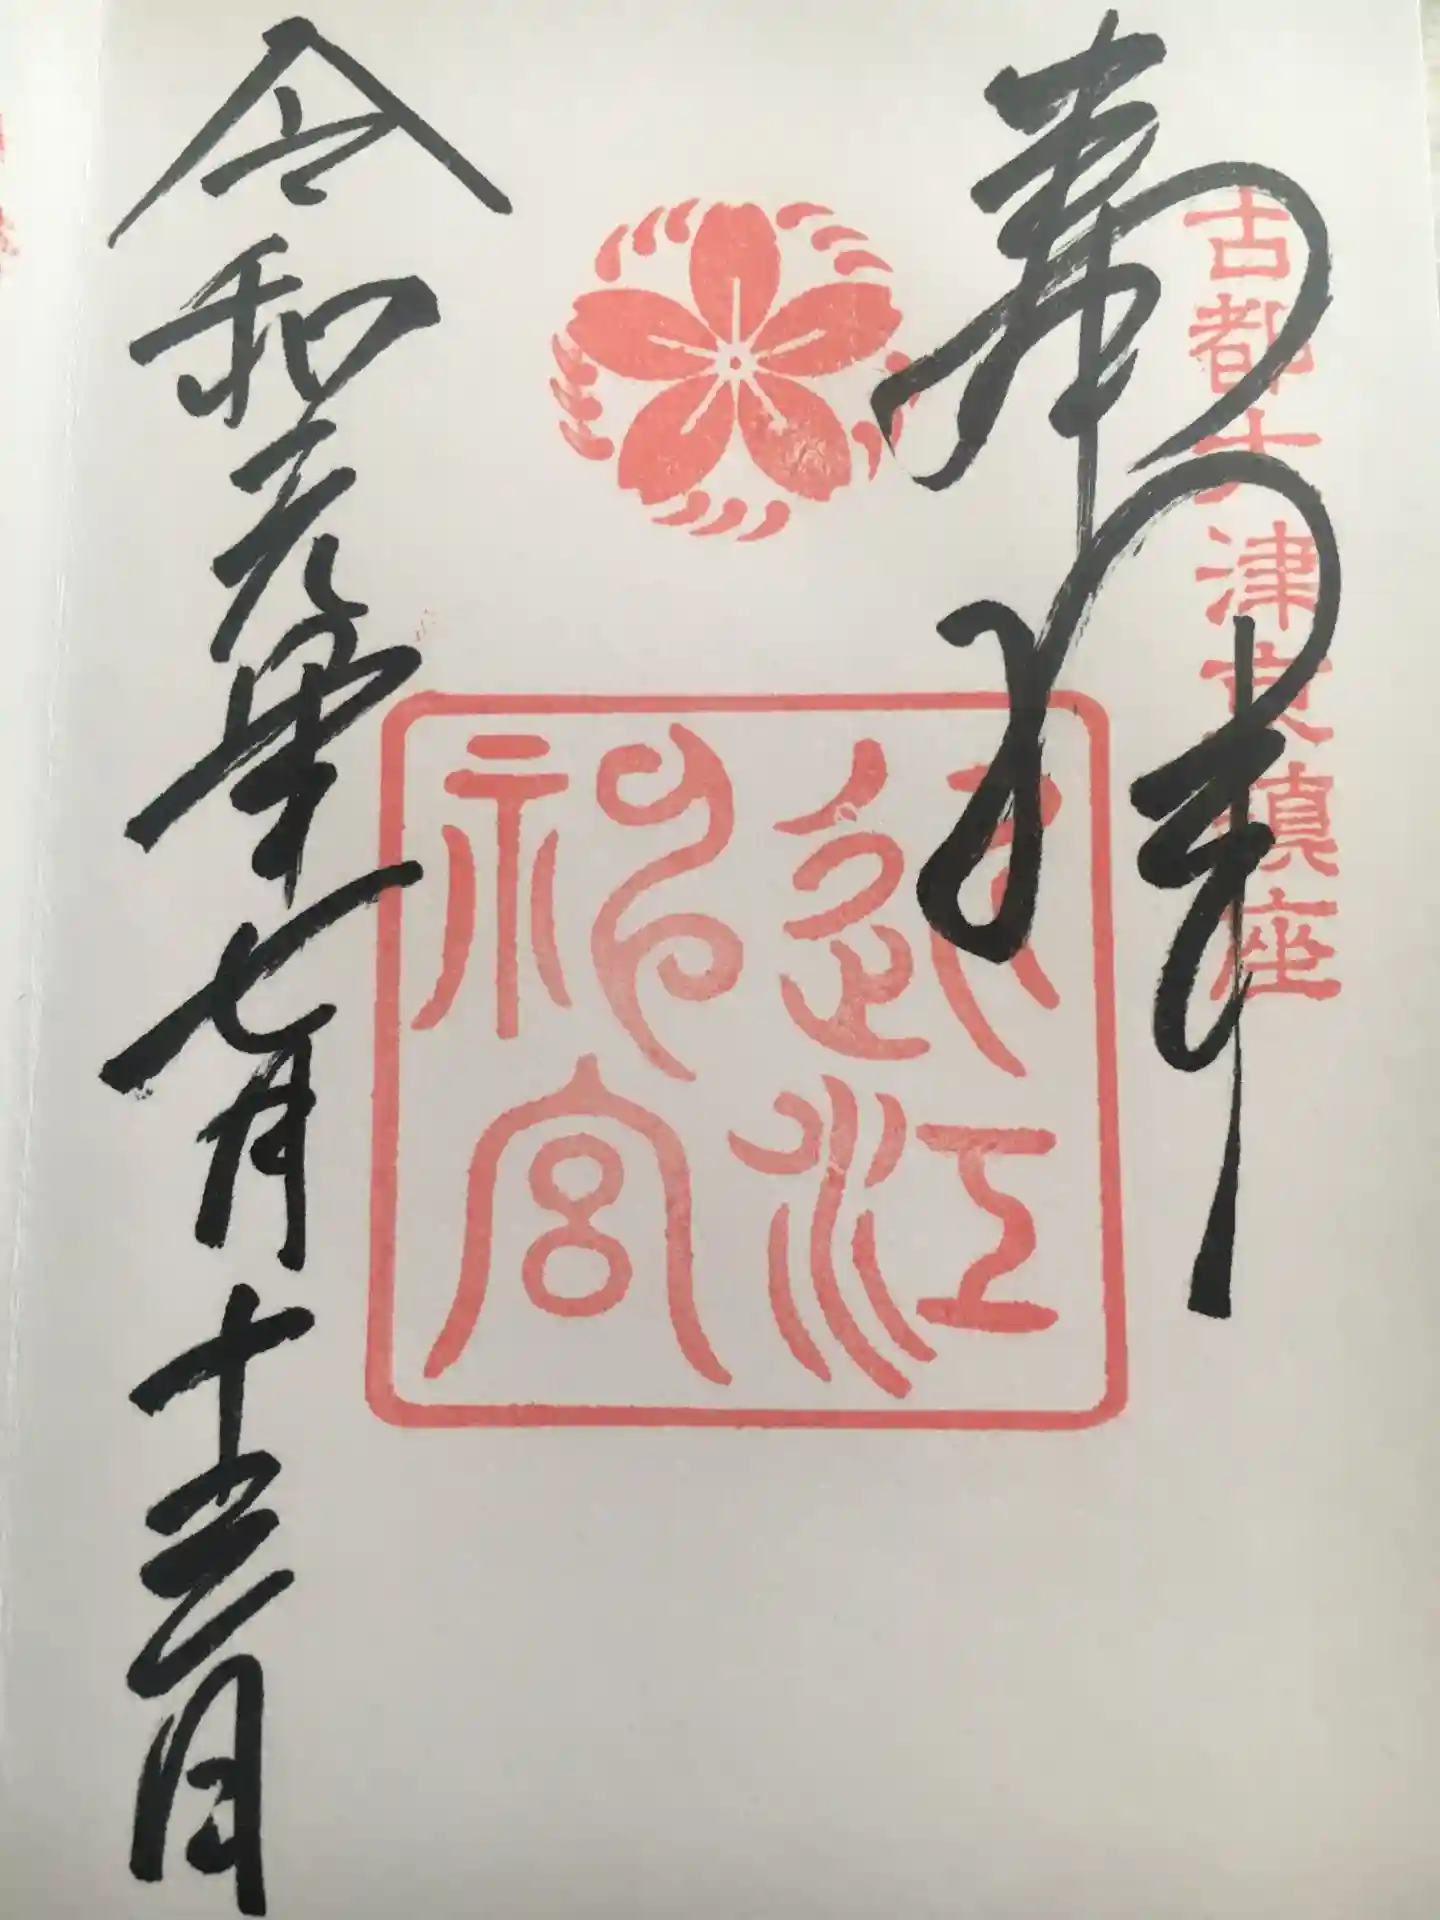 奉拝
古都大津京鎮座
近江神宮
令和元年七月十三日